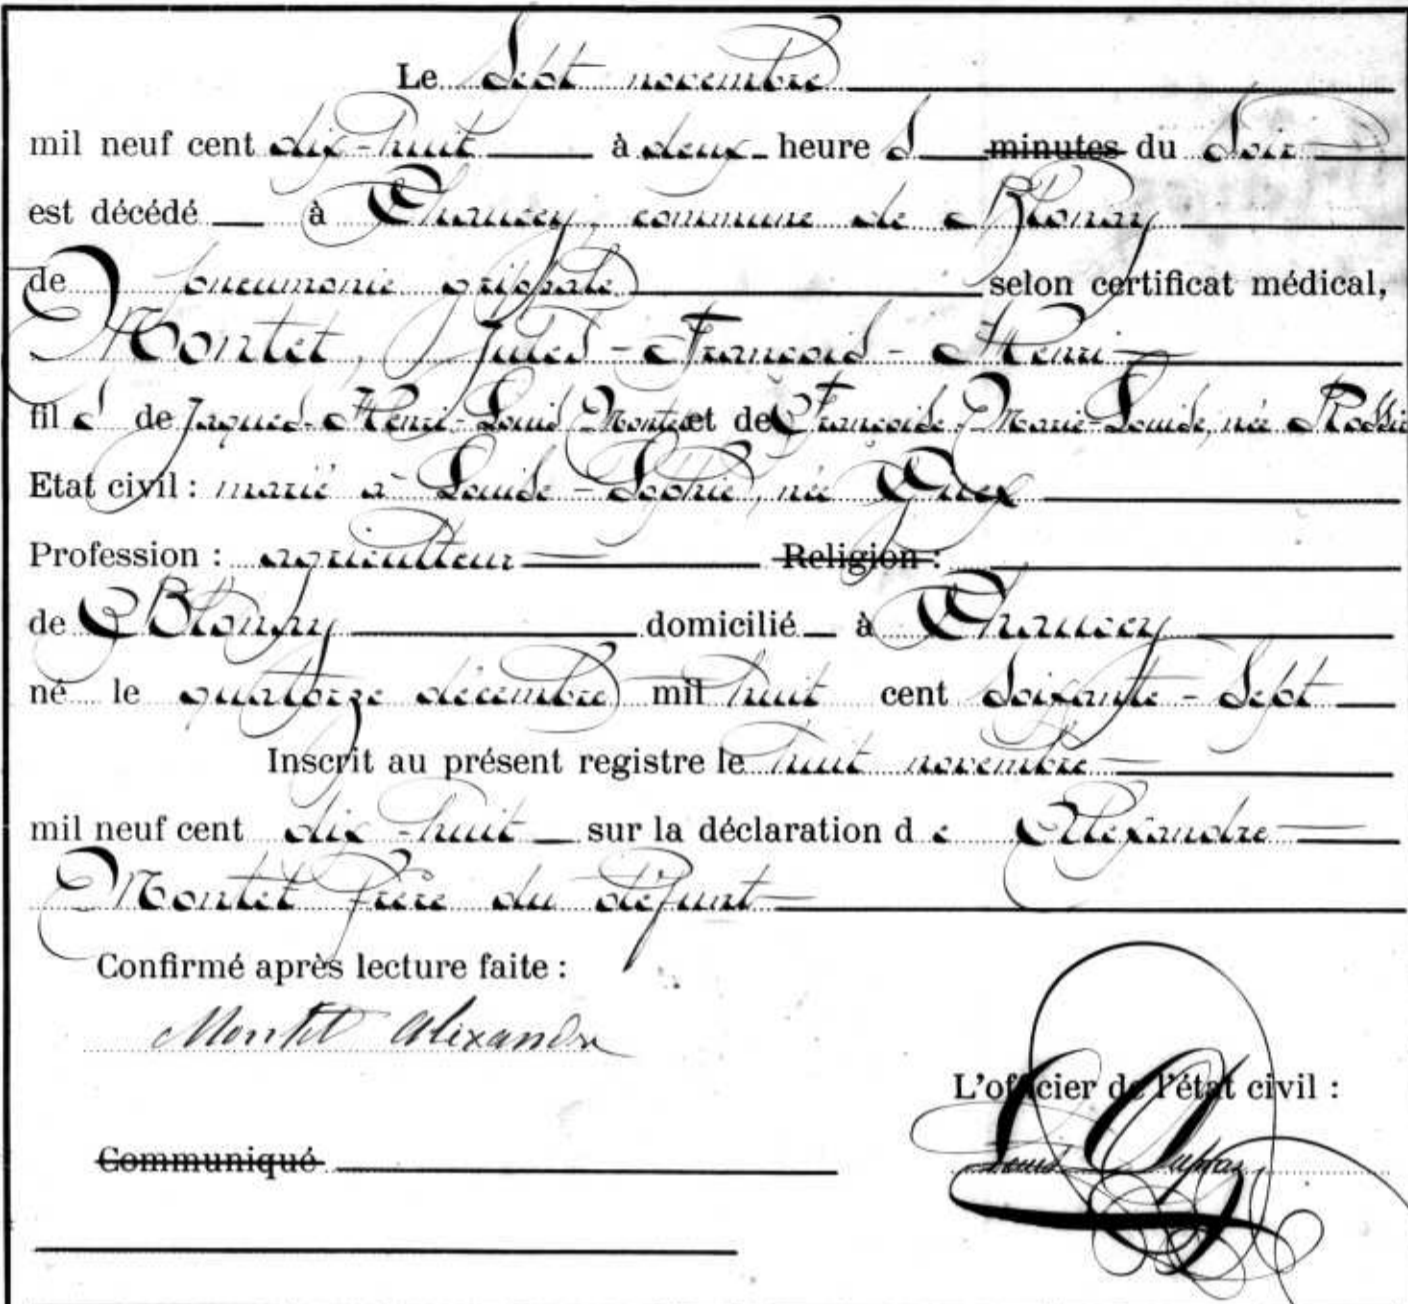 Le Sept novembre
mil neuf cent dix-huit à deux heures minutes du Soir
est décédé à Chaucey, commune de Blonay
de pneumonie grippale selon certificat médical,
Montet, Jules-François-Henri
fils de Jaques-Henri-Louis Montet et de Françoise-Marie-Louise, née Rossie
Etat civil : marié à Louise-Sophie, née
Profession : agriculteur Religion :
de Blonay domicilié à Chaucey
né le quatorze décembre mil huit cent Soixante-Sept
Inscrit au présent registre le huit novembre
mil neuf cent dix-huit sur la déclaration de Alexandre
Montet frère du défunt
Confirmé après lecture faite :
Montet Alexandre
L'officier de l'état civil :
Communiqué
Louis